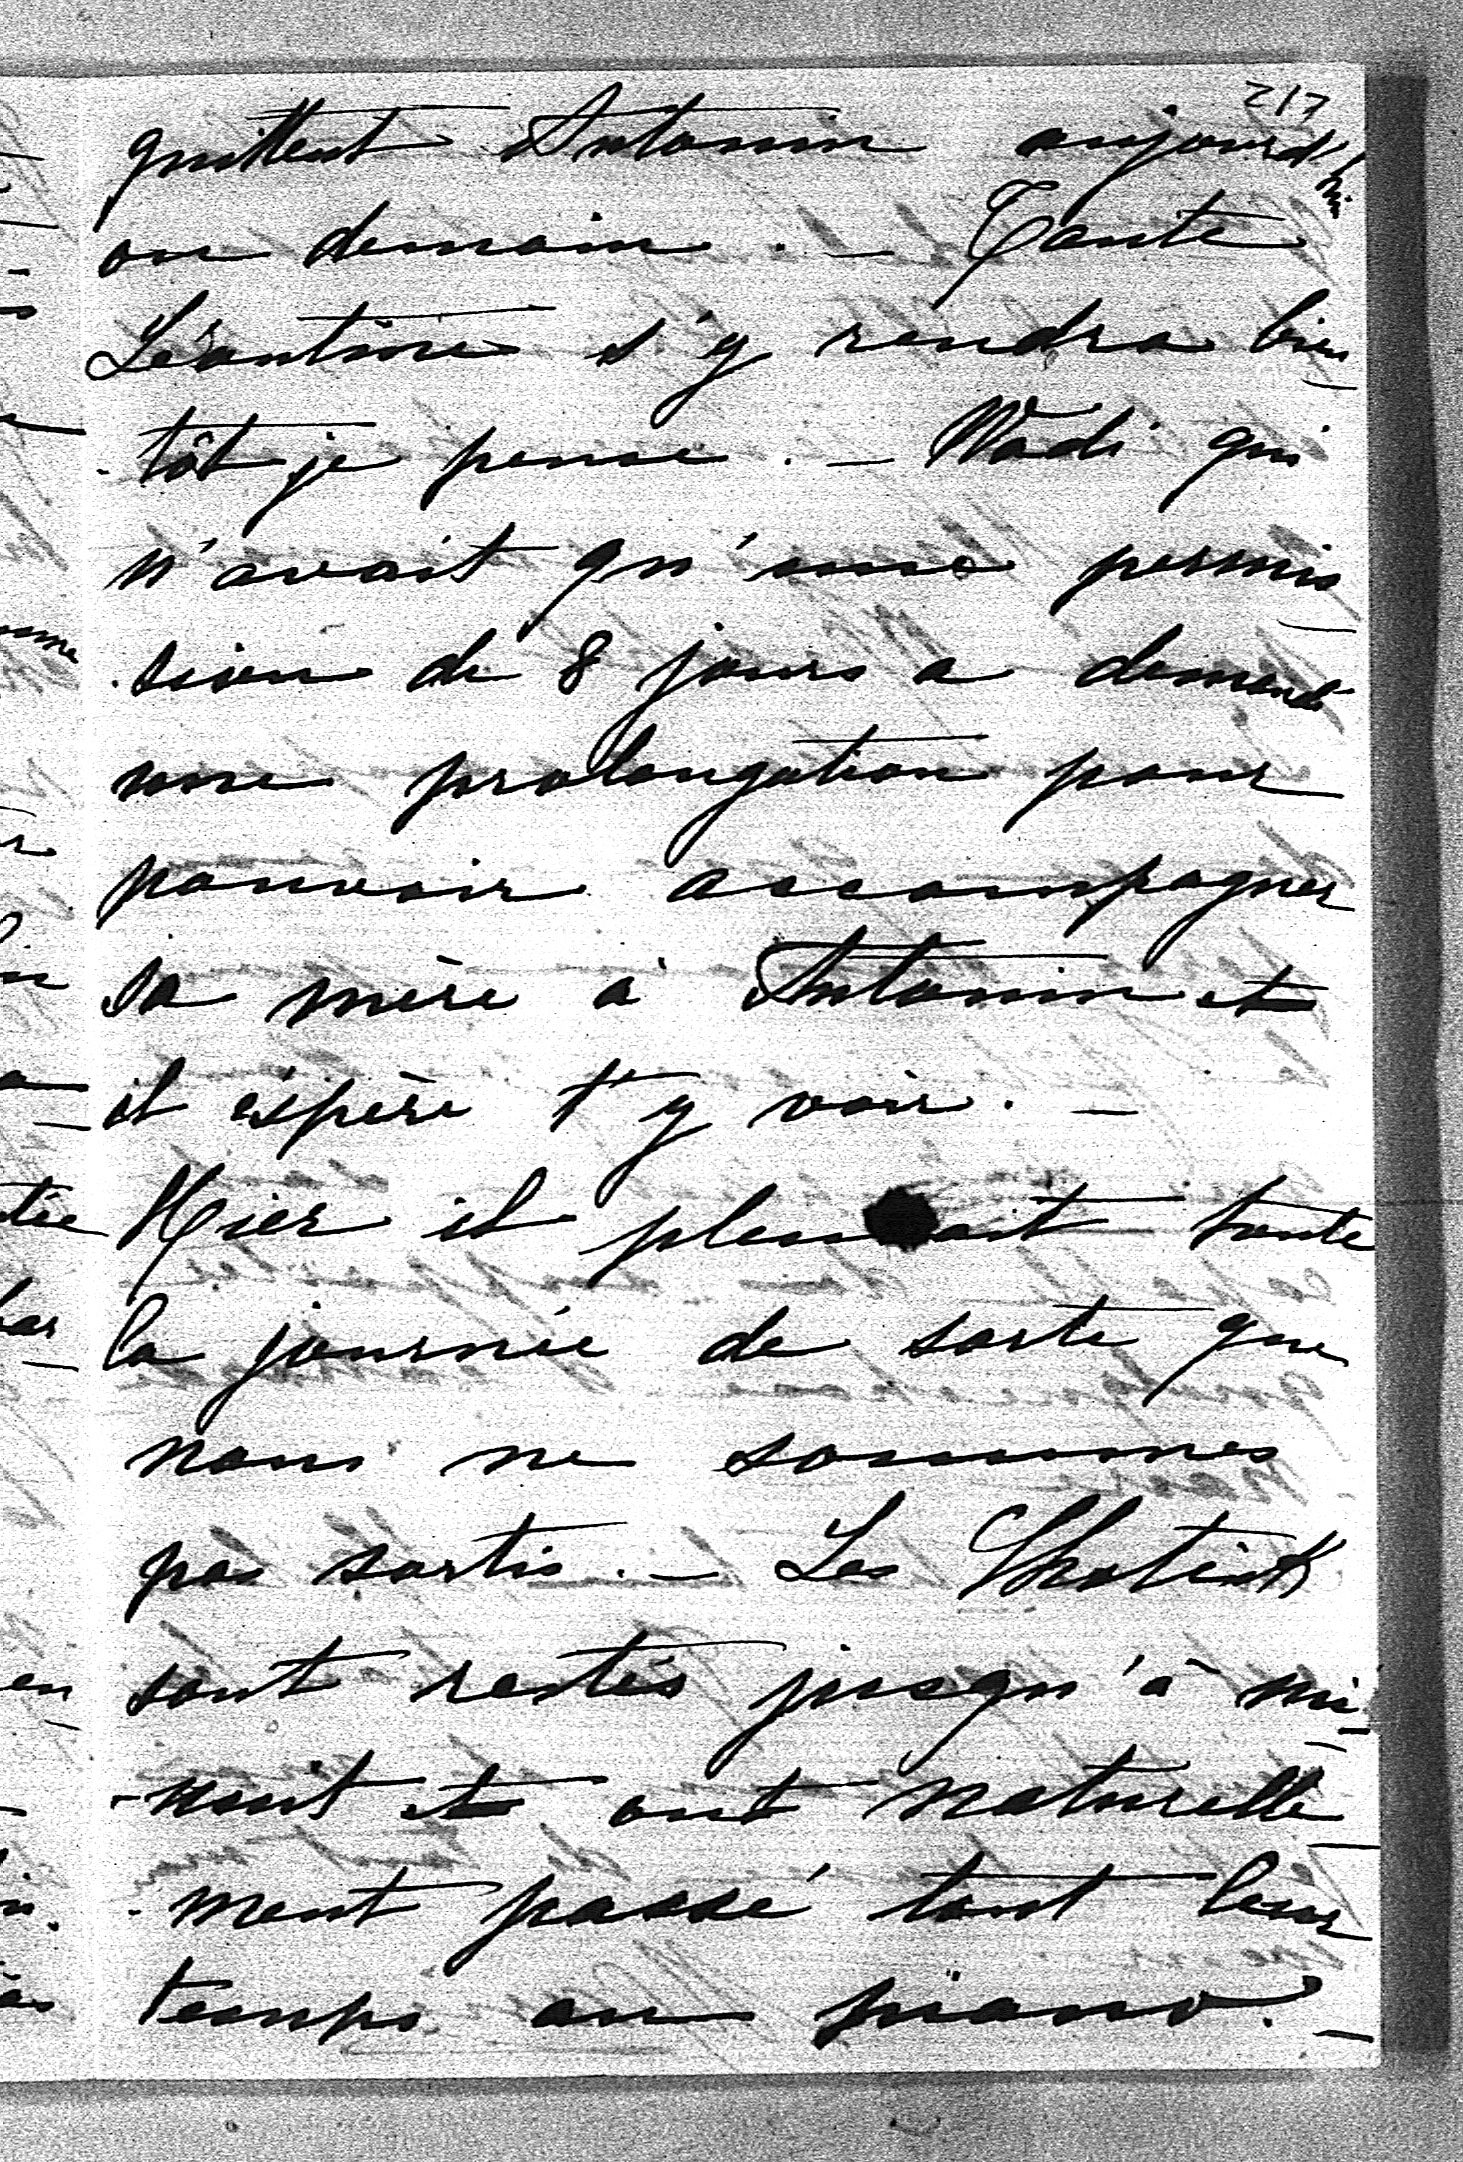 217
quittent Antonin aujourd'hui
ou demain. — Tante
Léontine s'y rendra bien
-tôt je pense. — Wadi qui
n'avait qu'une permis
-sion de 8 jours a demandé
une prolongation pour
pouvoir accompagner
sa mère à Antonin et
il espère t'y voir. —
Hier il pleuvait toute
la journée de sorte que
nous ne sommes
pas sortis. — Les
sont restés jusqu'à mi-
-nuit et ont naturelle
-ment passé tout leur
temps au piano. —